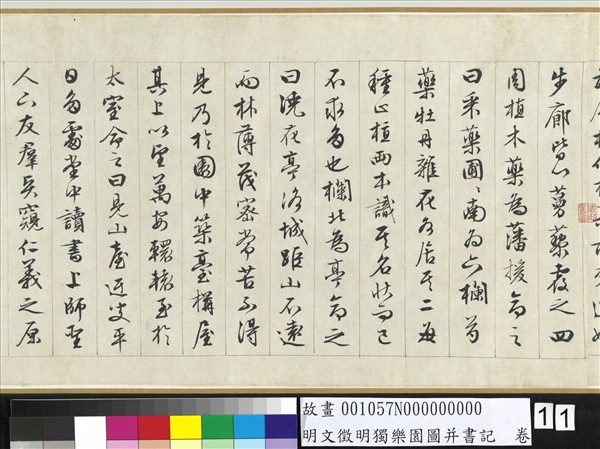 步廊皆以蔓藥覆之四
周植木藥為藩援命之
曰采藥圃〻南為六欄芍
藥牡丹雜花各居其二每
種止植兩本識其名狀而已
不求多也欄北為亭命之
曰澆花亭洛城距山不遠
而林薄茂密常苦不得
見乃於園中築臺構屋
其上以望萬安轘轅至於
太室命之曰見山臺迂叟平
日多處堂中讀書上師聖
人下友羣賢窺仁義之原
故畫 001057N000000000
明文徵明獨樂園圖并書記 卷
11